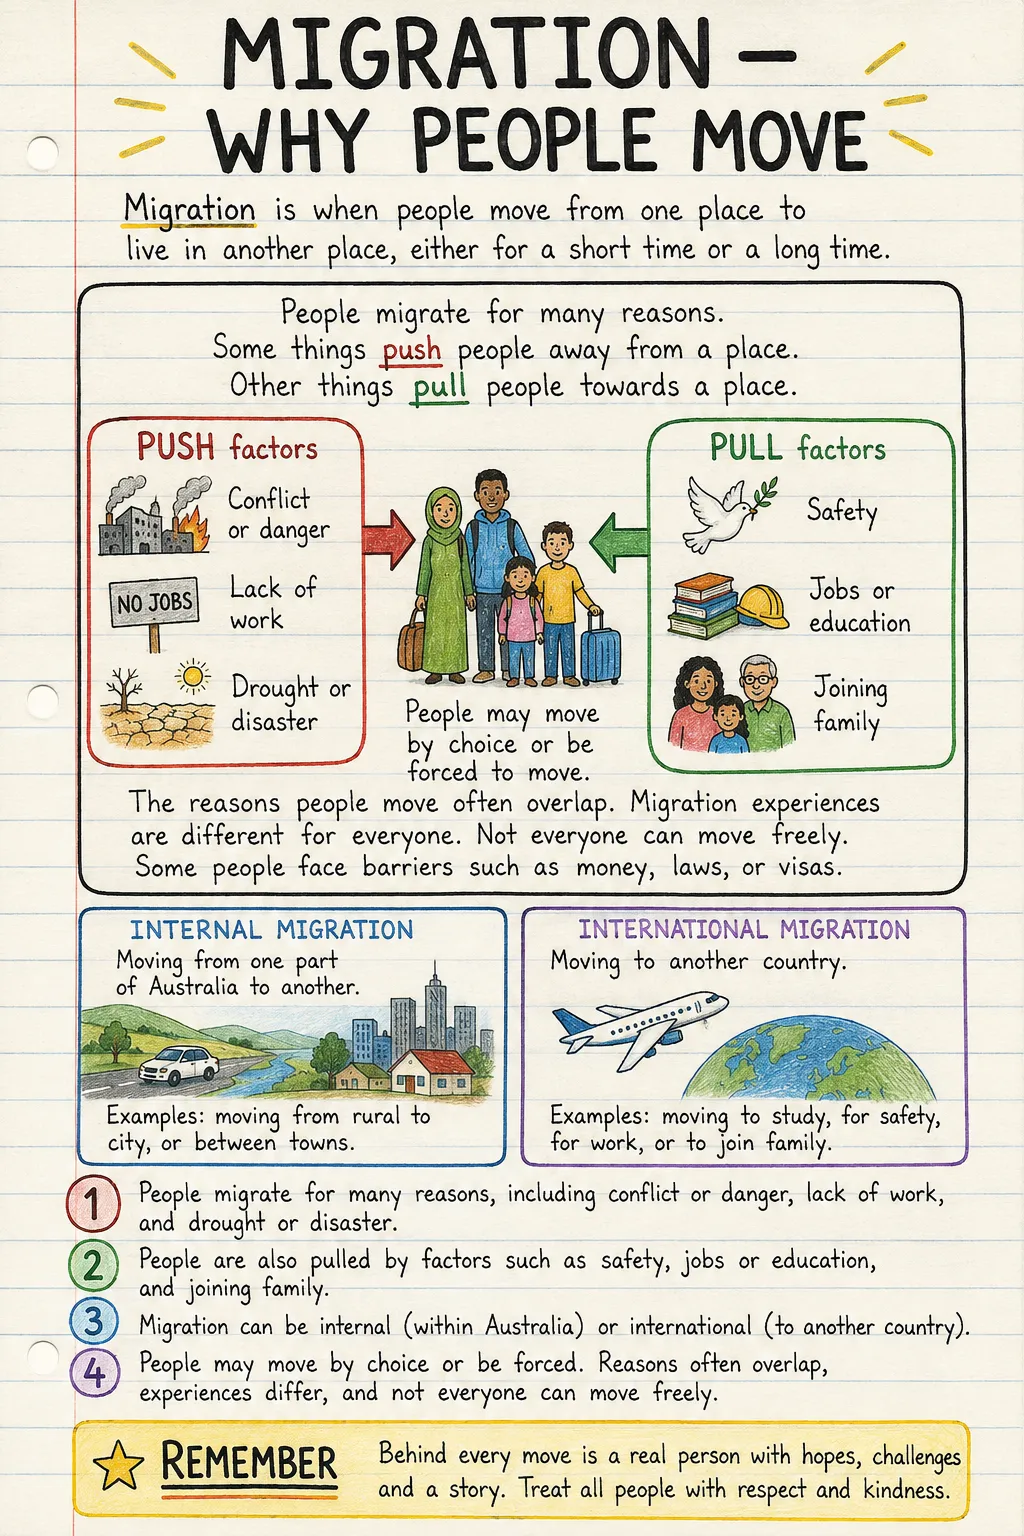 MIGRATION —
WHY PEOPLE MOVE
Migration is when people move from one place to
live in another place, either for a short time or a long time.
People migrate for many reasons.
Some things push people away from a place.
Other things pull people towards a place.
PUSH factors
Conflict
or danger
NO JOBS
Lack of
work
Drought or
disaster
People may move
by choice or be
forced to move.
PULL factors
Safety
Jobs or
education
Joining
family
The reasons people move often overlap. Migration experiences
are different for everyone. Not everyone can move freely.
Some people face barriers such as money, laws, or visas.
INTERNAL MIGRATION
Moving from one part
of Australia to another.
Examples: moving from rural to
city, or between towns.
INTERNATIONAL MIGRATION
Moving to another country.
Examples: moving to study, for safety,
for work, or to join family.
1 People migrate for many reasons, including conflict or danger, lack of work,
and drought or disaster.
2 People are also pulled by factors such as safety, jobs or education,
and joining family.
3 Migration can be internal (within Australia) or international (to another country).
4 People may move by choice or be forced. Reasons often overlap,
experiences differ, and not everyone can move freely.
REMEMBER
Behind every move is a real person with hopes, challenges
and a story. Treat all people with respect and kindness.